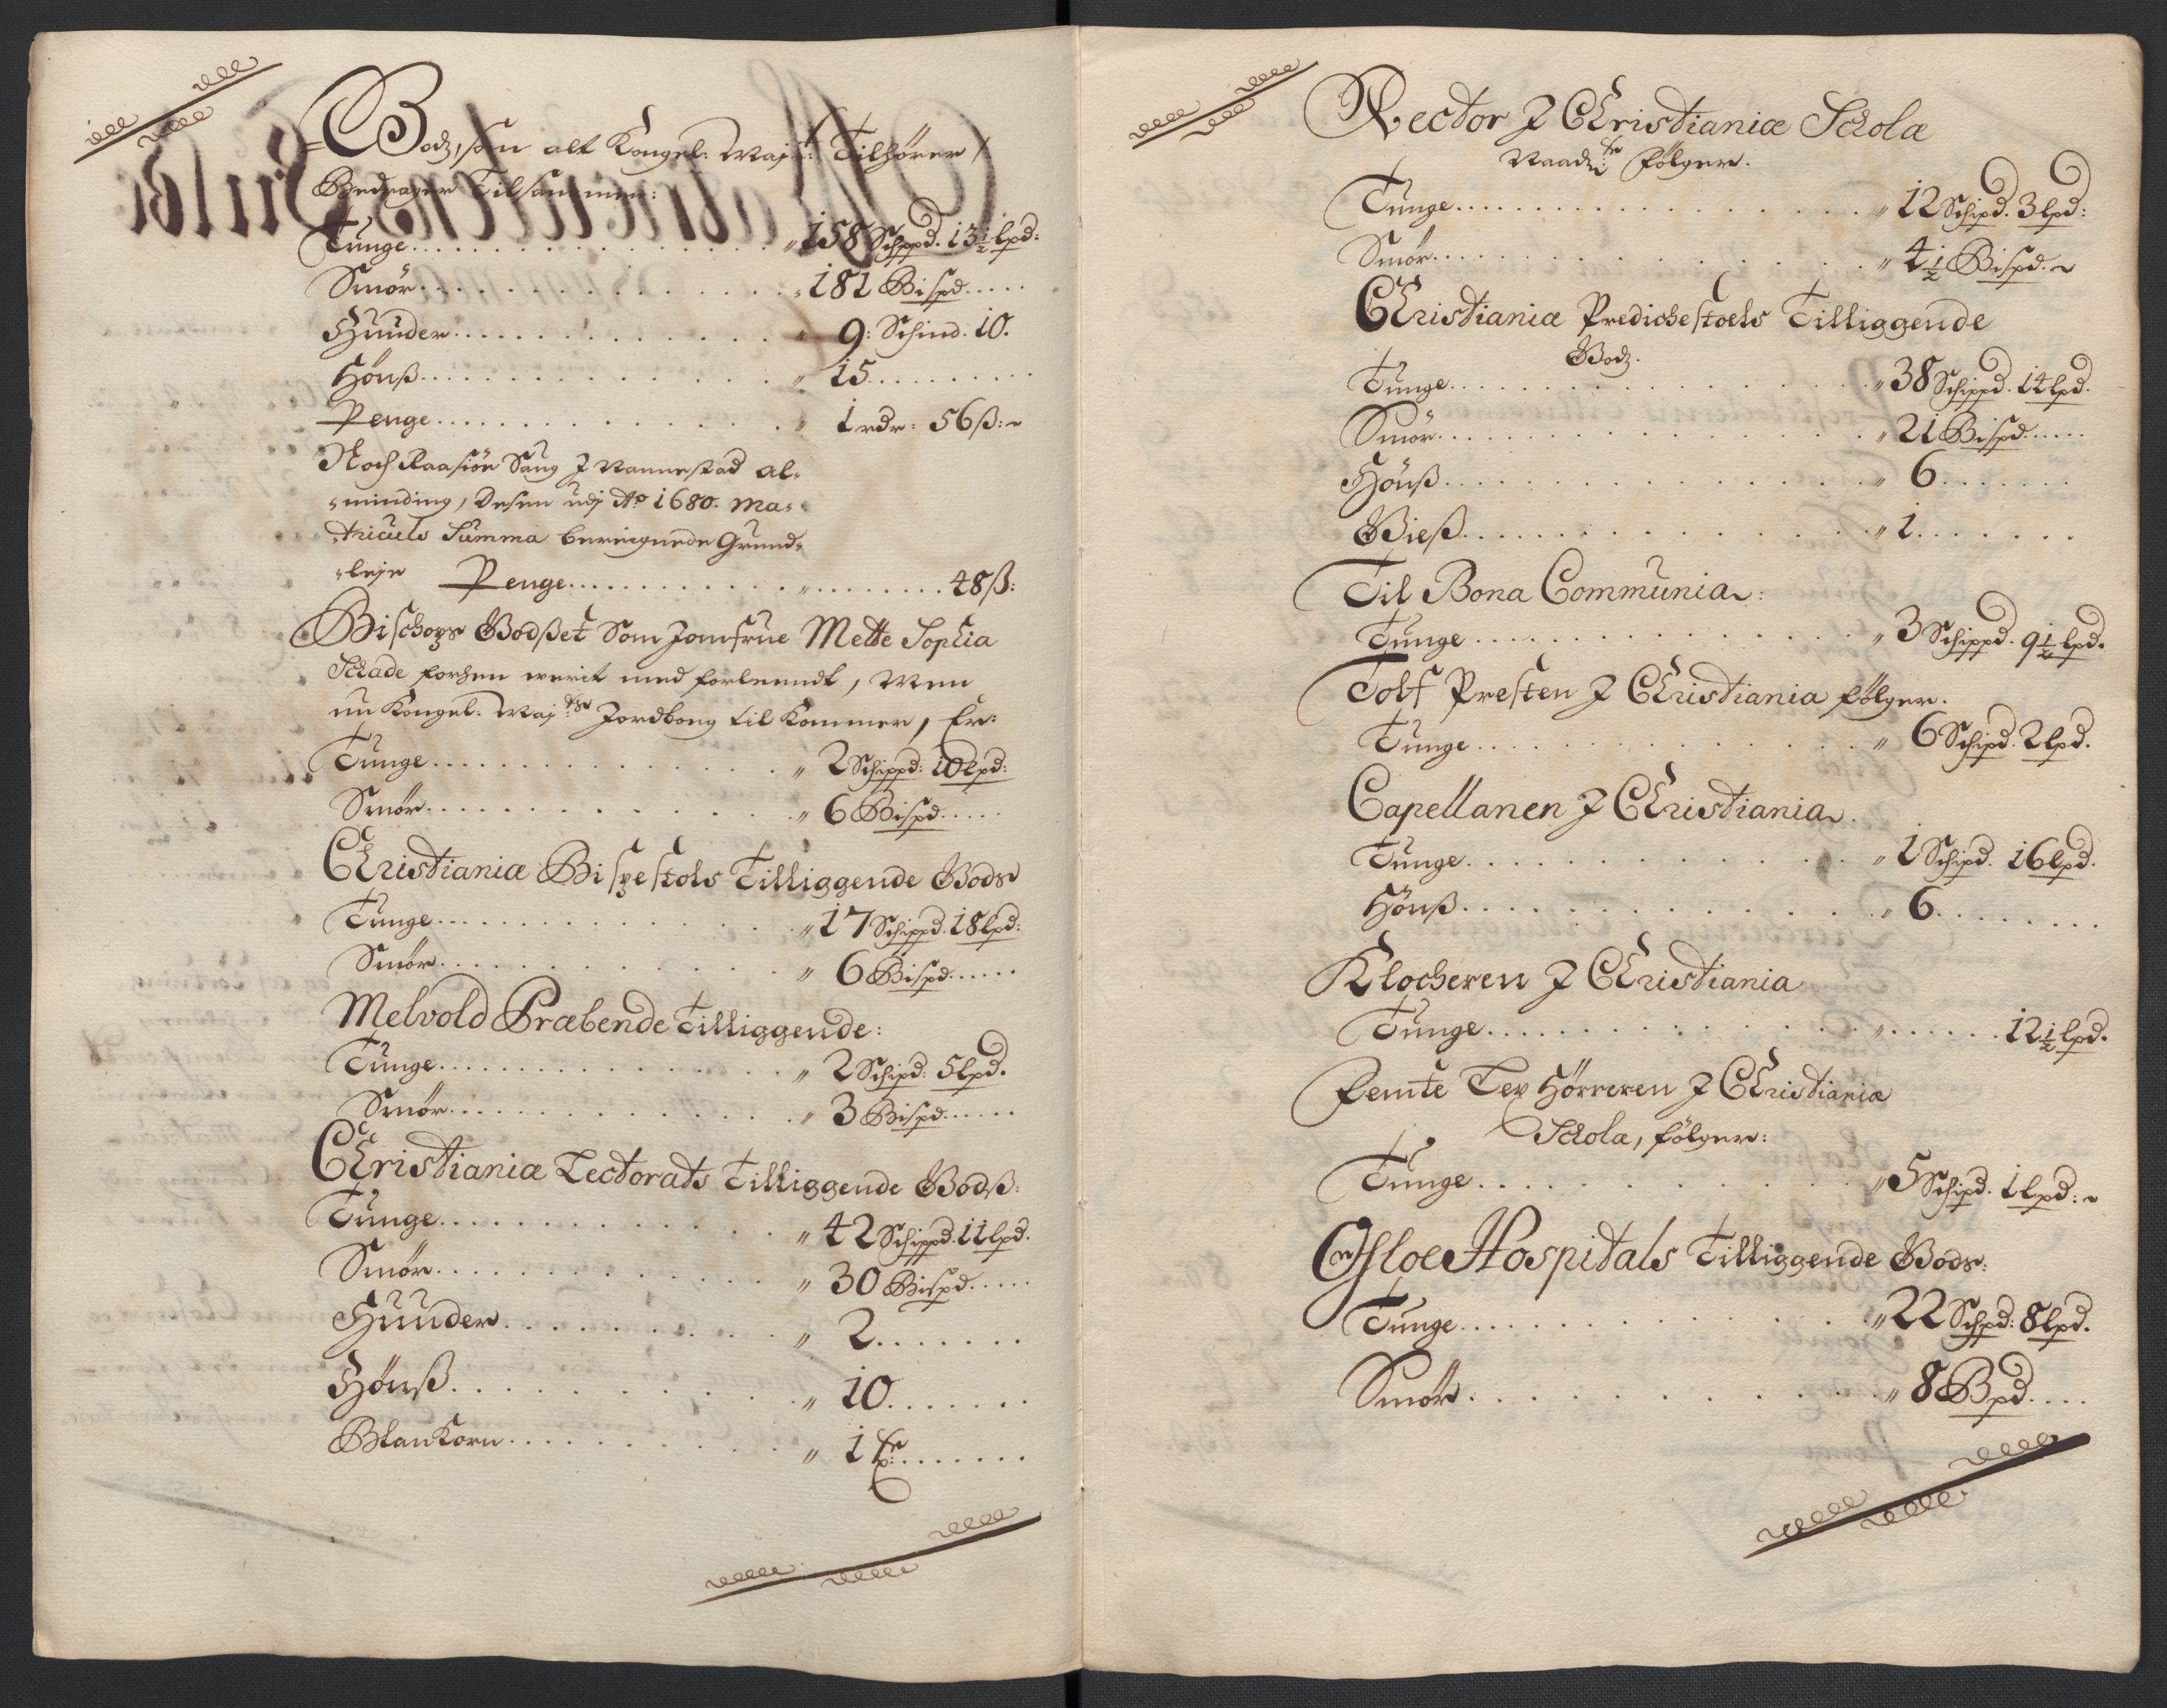 Godz, som alt Kongel: Maj: Tilhører /
Bedrager Tilsammen:
Tunge . . . . . „ 158 Schippd. 13½ lpd:
Smör . . . . . „ 181 Bispd. . . .
Huuder . . . . . „ 9: Schind. 10.
Hönß . . . . . „ 15. . . .
Penge . . . . . „ 1 rdr: 56 ß:
Noch Raasiön Saug J Vannestad al-
minding, Desen udj Ao 1680. Ma-
triculs Summa beregnede Grund-
leje Penge . . . . . „ . . . . 48 ß:
Bischops Godßet Som Jomfrue Mette Sophia
Schade forhen verit med forleendt, Men
nu Kongel. Maj:ts Jordbong til Kommer, Er:
Tunge . . . . . „ 2 Schippd: 10 lpd:
Smör . . . . . „ 6 Bispd. . . .
Christianiæ Bispestols Tilliggende Gods
Tunge . . . . . „ 17 Schippd. 18 lpd:
Smör . . . . . „ 6 Bispd. . . .
Melvold Præbende Tilliggende:
Tunge . . . . . „ 2 Schipd: 5 lpd.
Smör . . . . . „ 3 Bispd. . . .
Christianiæ Lectorats Tilliggende Godß:
Tunge . . . . . „ 42 Schippd. 11 lpd.
Smör . . . . . „ 30 Bispd. . . .
Huuder . . . . . „ 2. . . .
Hönß . . . . . „ 10. . . .
BlanKorn . . . . . „ 1
Rector J Christianiæ Schola
Naad: følger.
Tunge . . . . . „ 12 Schipd. 3 lpd:
Smör . . . . . „ 4½ Bispd.
Christiania Predichestoels Tilliggende
Godz.
Tunge . . . . . „ 38 Schippd. 14 lpd.
Smör . . . . . „ 21 Bispd. . . .
Hönß . . . . . „ 6. . . .
Gieß . . . . . „ 1. . . .
Til Bona Communia:
Tunge . . . . . „ 3 Schippd. 9½ lpd.
Tolf Presten J Christiania følger.
Tunge . . . . . „ 6 Schipd. 2 lpd.
Capellanen J Christiania.
Tunge . . . . . „ 1 Schipd. 16 lpd.
Hönß . . . . . „ 6. . . .
Klocheren J Christiania
Tunge . . . . . „ . . . . 12½ lpd.
Femte Lex Hörreren J Christianiæ
Schola, følger:
Tunge . . . . . „ 5 Schipd. 1 lpd:
Osloe Hospitals Tilliggende Gods:
Tunge . . . . . „ 22 Schpd: 8 lpd.
Smör . . . . . „ 8 Bpd. . . .